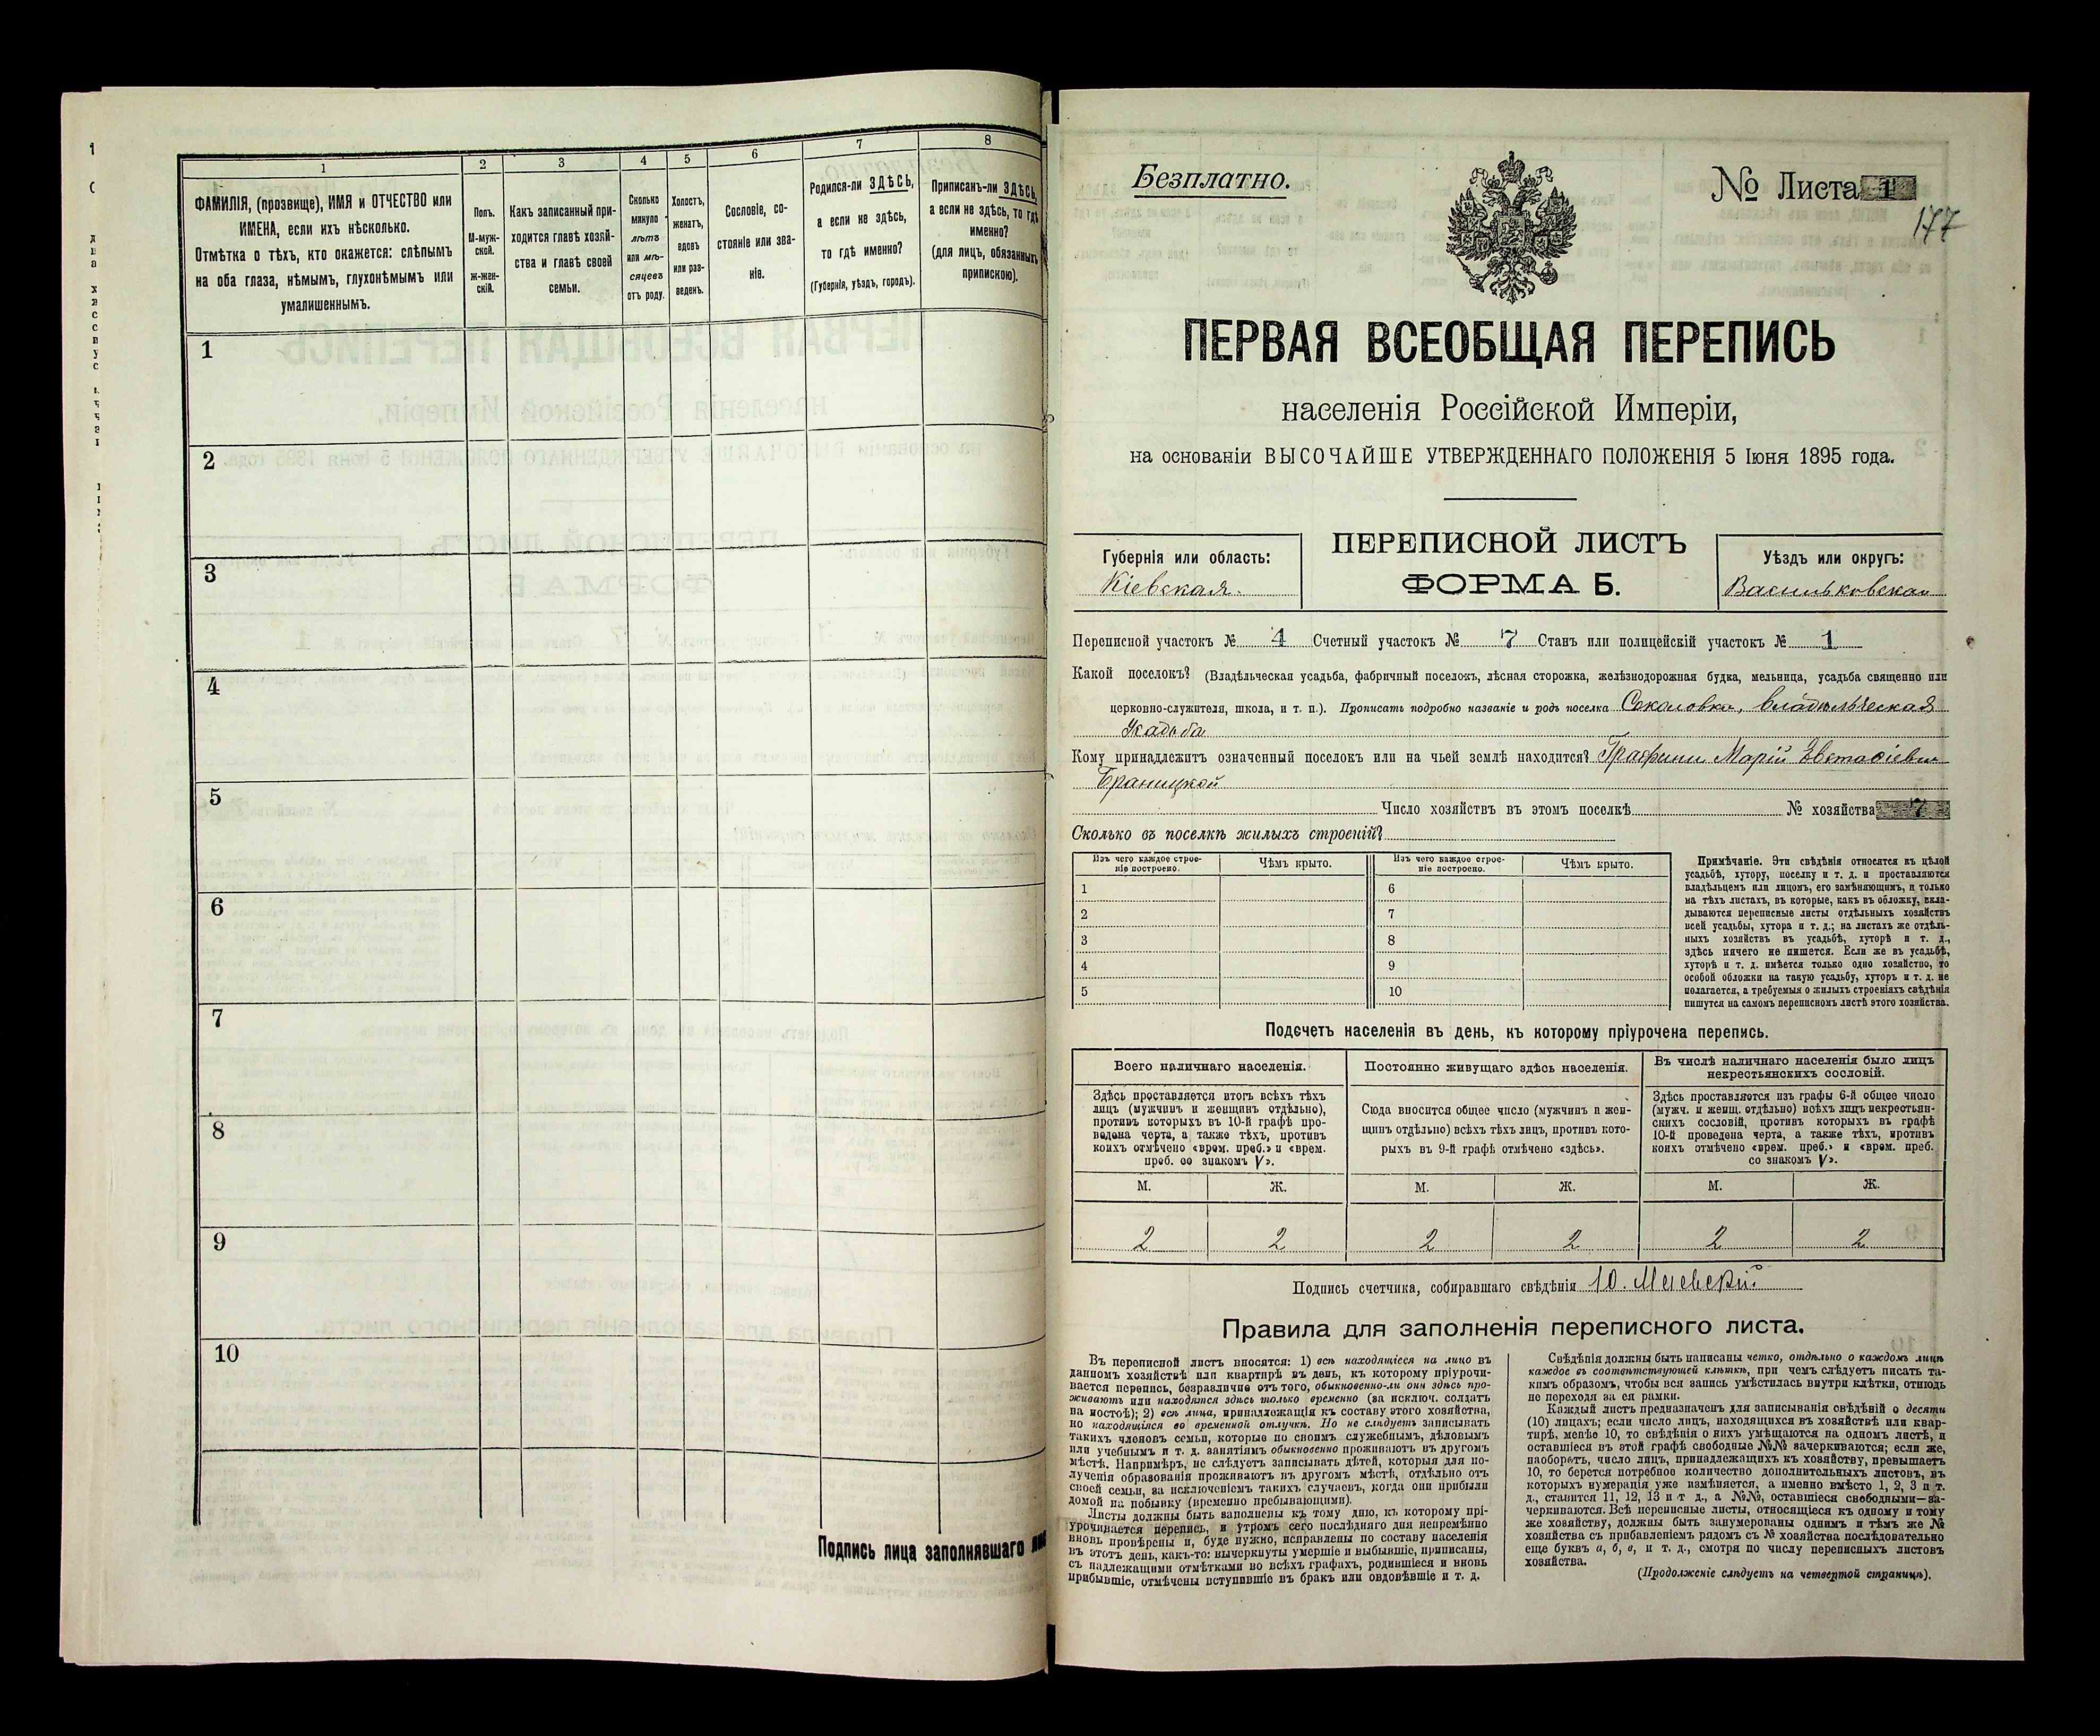 1
2
3
4
5
6
7
8
ФАМИЛІЯ, (прозвище), ИМЯ и ОТЧЕСТВО или
ИМЕНА, если ихъ нѣсколько.
Отмѣтка о тѣхъ, кто окажется: слѣпымъ
на оба глаза, нѣмымъ, глухонѣмымъ или
умалишеннымъ.
Полъ.
М-муж-
ской.
Ж-жен-
скій.
Какъ записанный при-
ходится главѣ хозяй-
ства и главѣ своей
семьи.
Сколько
минуло
лѣтъ
или мѣ-
сяцевъ
отъ роду.
Холостъ,
женатъ,
вдовъ
или раз-
веденъ.
Сословіе, со-
стояніе или зва-
ніе.
Родился-ли ЗДѢСЬ,
а если не здѣсь,
то гдѣ именно?
(Губернія, уѣздъ, городъ).
Приписанъ-ли ЗДѢСЬ,
а если не здѣсь, то гдѣ
именно?
(для лицъ, обязанныхъ
припискою).
1
2
3
4
5
6
7
8
9
10
Подпись лица заполнявшаго
Безплатно.
№ Листа 1
177
ПЕРВАЯ ВСЕОБЩАЯ ПЕРЕПИСЬ
населенія Россійской Имперіи,
на основаніи ВЫСОЧАЙШЕ УТВЕРЖДЕННАГО ПОЛОЖЕНІЯ 5 Іюня 1895 года.
Губернія или область:
Кіевская.
ПЕРЕПИСНОЙ ЛИСТЪ
ФОРМА Б.
Уѣздъ или округъ:
Васильковская
Переписной участокъ № 4 Счетный участокъ № 7 Станъ или полицейскій участокъ № 1
Какой поселокъ? (Владѣльческая усадьба, фабричный поселокъ, лѣсная сторожка, желѣзнодорожная будка, мельница, усадьба священно или
церковно-служителя, школа, и т. п.). Прописать подробно названіе и родъ поселка Соколовка, владѣльческая
Усадьба
Кому принадлежитъ означенный поселокъ или на чьей землѣ находится? Графини Марій Евстафіевны
Браницкой
Число хозяйствъ въ этомъ поселкѣ № хозяйства 7
Сколько въ поселкѣ жилыхъ строеній?
Изъ чего каждое строе-
ніе построено.
Чѣмъ крыто.
Изъ чего каждое строе-
ніе построено.
Чѣмъ крыто.
1 6
2 7
3 8
4 9
5 10
Примѣчаніе. Эти свѣдѣнія относятся къ цѣлой
усадьбѣ, хутору, поселку и т. д. и проставляются
владѣльцемъ или лицомъ, его замѣняющимъ, и только
на тѣхъ листахъ, въ которые, какъ въ обложку, вкла-
дываются переписные листы отдѣльныхъ хозяйствъ
всей усадьбы, хутора и т. д.; на листахъ же отдѣль-
ныхъ хозяйствъ въ усадьбѣ, хуторѣ и т. д.,
здѣсь ничего не пишется. Если же въ усадьбѣ,
хуторѣ и т. д. имѣется только одно хозяйство, то
особой обложки на такую усадьбу, хуторъ и т. д. не
полагается, а требуемыя о жилыхъ строеніяхъ свѣдѣнія
пишутся на самомъ переписномъ листѣ этого хозяйства.
Подсчетъ населенія въ день, къ которому пріурочена перепись.
Всего наличнаго населенія.
Постоянно живущаго здѣсь населенія.
Въ числѣ наличнаго населенія было лицъ
некрестьянскихъ сословій.
Здѣсь проставляется итогъ всѣхъ тѣхъ
лицъ (мужчинъ и женщинъ отдѣльно),
противъ которыхъ въ 10-й графѣ про-
ведена черта, а также тѣхъ, противъ
коихъ отмѣчено «врем. преб.» и «врем.
преб. со знакомъ V».
Сюда вносится общее число (мужчинъ и жен-
щинъ отдѣльно) всѣхъ тѣхъ лицъ, противъ кото-
рыхъ въ 9-й графѣ отмѣчено «здѣсь».
Здѣсь проставляется изъ графы 6-й общее число
(мужч. и женщ. отдѣльно) всѣхъ лицъ некрестьян-
скихъ сословій, противъ которыхъ въ графѣ
10-й проведена черта, а также тѣхъ, противъ
коихъ отмѣчено «врем. преб.» и «врем. преб.
со знакомъ V».
М. Ж. М. Ж. М. Ж.
2 2 2 2 2 2
Подпись счетчика, собиравшаго свѣдѣнія Ю.
Правила для заполненія переписного листа.
Въ переписной листъ вносятся: 1) всѣ находящіеся на лицо въ
данномъ хозяйствѣ или квартирѣ въ день, къ которому пріурочи-
вается перепись, безразлично отъ того, обыкновенно-ли они здѣсь про-
живаютъ или находятся здѣсь только временно (за исключ. солдатъ
на постоѣ); 2) всѣ лица, принадлежащія къ составу этого хозяйства,
но находящіяся во временной отлучкѣ. Но не слѣдуетъ записывать
такихъ членовъ семьи, которые по своимъ служебнымъ, дѣловымъ
или учебнымъ и т. д. занятіямъ обыкновенно проживаютъ въ другомъ
мѣстѣ. Напримѣръ, не слѣдуетъ записывать дѣтей, которыя для по-
лученія образованія проживаютъ въ другомъ мѣстѣ, отдѣльно отъ
своей семьи, за исключеніемъ такихъ случаевъ, когда они прибыли
домой на побывку (временно пребывающими).
Листы должны быть заполнены къ тому дню, къ которому прі-
урочивается перепись, и утромъ сего послѣдняго дня непремѣнно
вновь провѣрены и, буде нужно, исправлены по составу населенія
въ этотъ день, какъ-то: вычеркнуты умершіе и выбывшіе, приписаны,
съ надлежащими отмѣтками во всѣхъ графахъ, родившіеся и вновь
прибывшіе, отмѣчены вступившіе въ бракъ или овдовѣвшіе и т. д.
Свѣдѣнія должны быть написаны четко, отдѣльно о каждомъ лицѣ
каждое въ соотвѣтствующей клѣткѣ, при чемъ слѣдуетъ писать та-
кимъ образомъ, чтобы вся запись умѣстилась внутри клѣтки, отнюдь
не переходя за ея рамки.
Каждый листъ предназначенъ для записыванія свѣдѣній о десяти
(10) лицахъ; если число лицъ, находящихся въ хозяйствѣ или квар-
тирѣ, менѣе 10, то свѣдѣнія о нихъ умѣщаются на одномъ листѣ, и
оставшіеся въ этой графѣ свободные №№ зачеркиваются; если же,
наоборотъ, число лицъ, принадлежащихъ къ хозяйству, превышаетъ
10, то берется потребное количество дополнительныхъ листовъ, въ
которыхъ нумерація уже измѣняется, а именно вмѣсто 1, 2, 3 и т.
д., ставится 11, 12, 13 и т д., а №№, оставшіеся свободными—за-
черкиваются. Всѣ переписные листы, относящіеся къ одному и тому
же хозяйству, должны быть занумерованы однимъ и тѣмъ же №
хозяйства съ прибавленіемъ рядомъ съ № хозяйства послѣдовательно
еще буквъ а, б, в, и т. д., смотря по числу переписныхъ листовъ
хозяйства.
(Продолженіе слѣдуетъ на четвертой страницѣ).